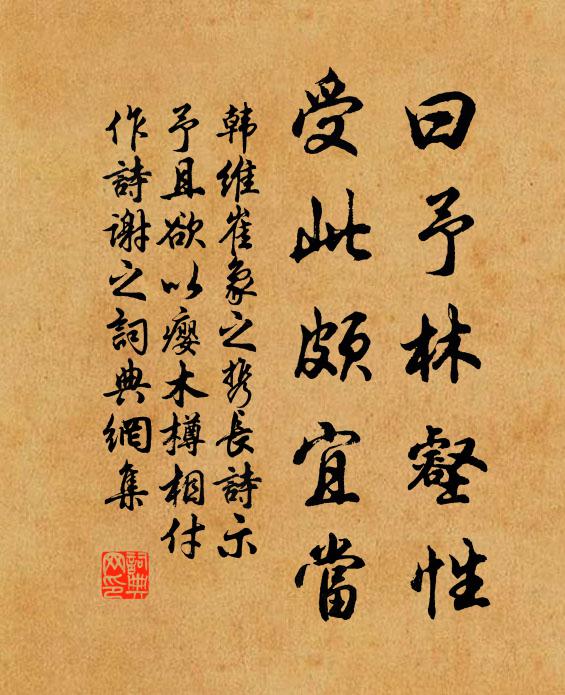 曰予林壑性
受此頗宜當
韩維崔象之携長詩示
予且欲以癭木樽相付
作詩谢之詞典網集
詞典网印